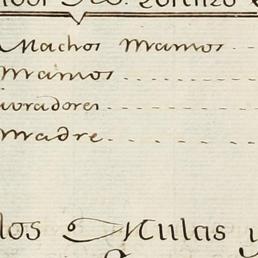 Lorenzo
Machos Mamos
Mamos
ivoradores
Madre
los Mulas y